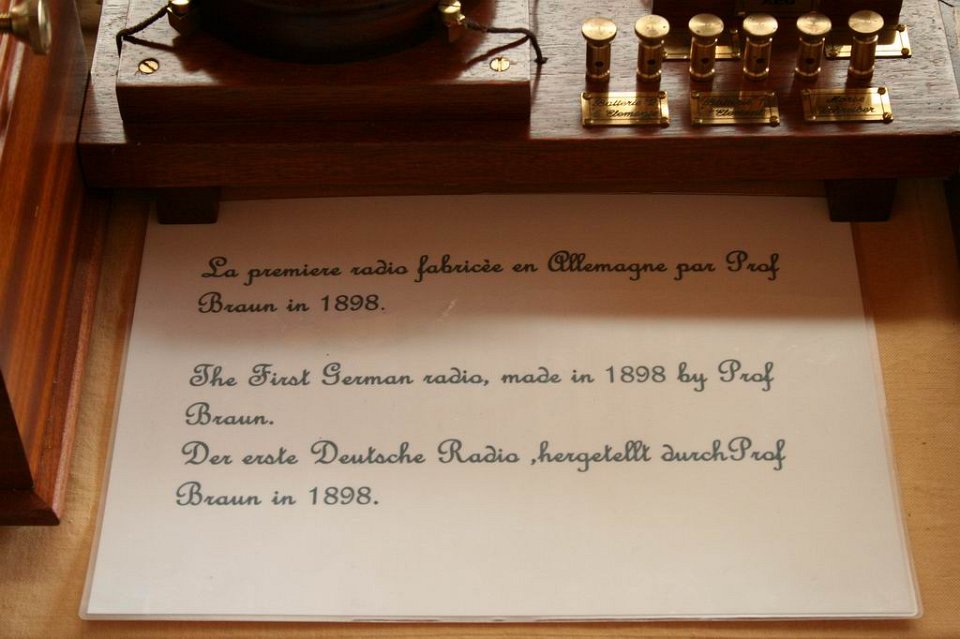 AEG
Batterie
Elemente
Elemente
Morse
La premiere radio fabricèe en Allemagne par Prof
Braun in 1898.
The First German radio, made in 1898 by Prof
Braun.
Der erste Deutsche Radio ,hergetellt durchProf
Braun in 1898.